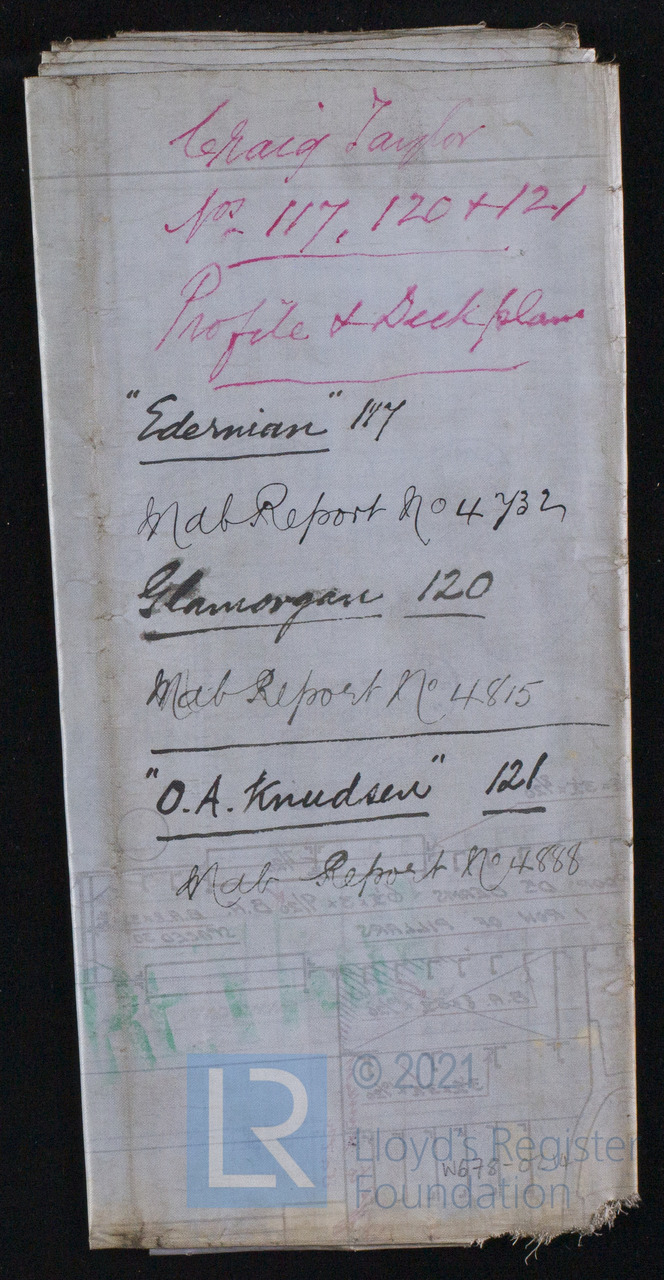 Craig Taylor
Nos. 117, 120 & 121
Profile & Deck plans
"Edernian" 117
Mdb Report No 4732
Glamorgan 120
Mdb Report No 4815
"O.A. Knudsen" 121
Mdb Report No 4888
1 ROW OF PILLARS
SPACED 30
LR
© 2021
Lloyd's Register
Foundation